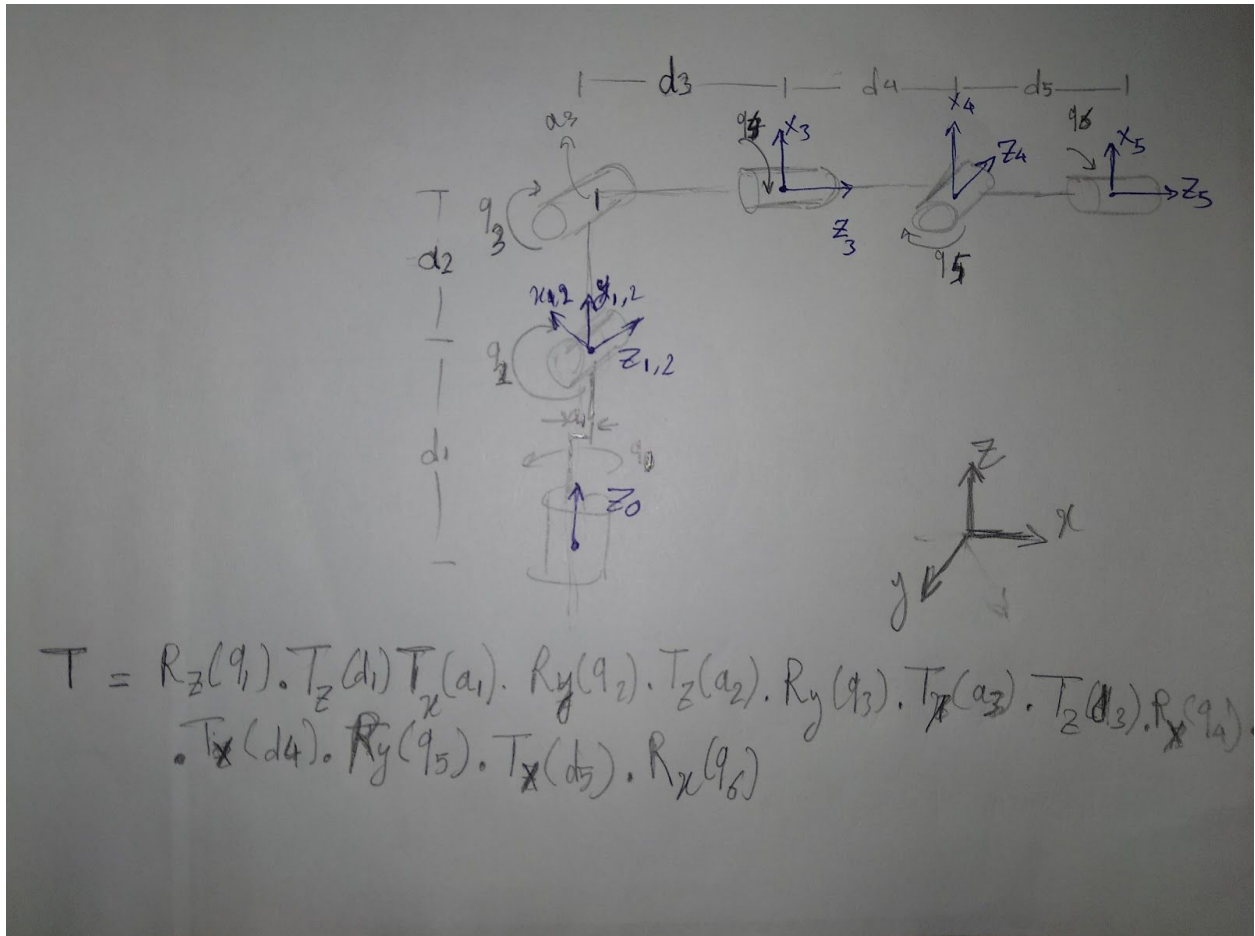 d3 d4 d5
a3 q4 x3 x4 q6 x5
z4
z5
q3
z3
q5
d2
x1,2 y1,2
z1,2
q2
a1
d1
q1
z0
z
x
y
T = Rz(q1).Tz(d1)Tx(a1). Ry(q2).Tz(a2).Ry(q3).Tx(a3).Tz(d3).Rx(q4).
.Tx(d4).Ry(q5).Tx(d5).Rx(q6)